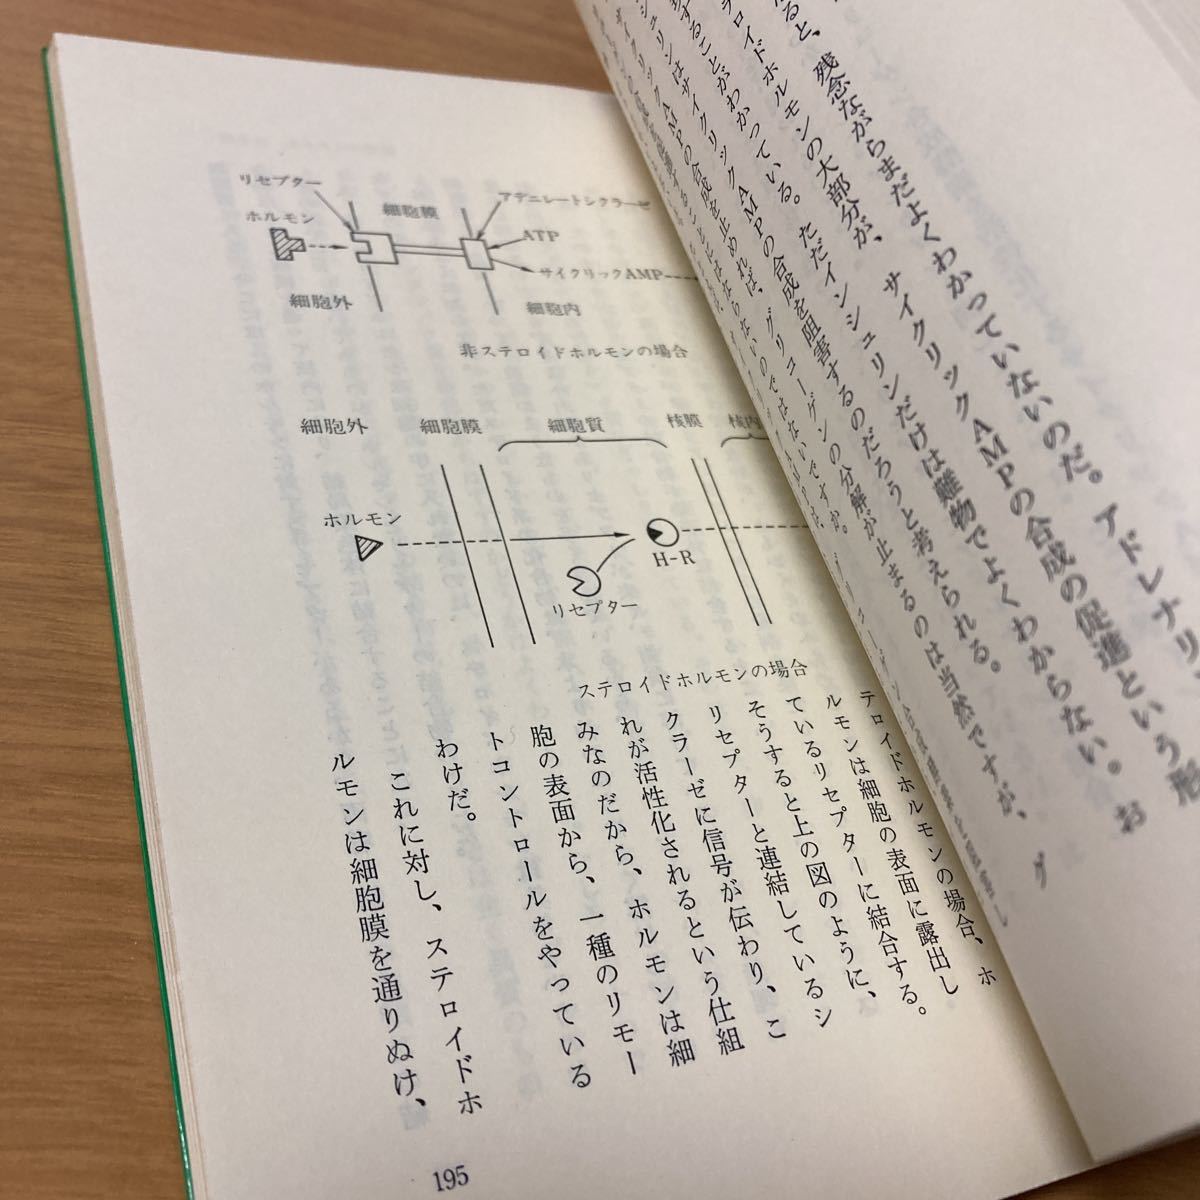 リセプター
ホルモン
細胞膜
アデニレートシクラーゼ
ATP
サイクリックAMP
細胞外
細胞内
非ステロイドホルモンの場合
細胞外
細胞膜
細胞質
核膜
核内
ホルモン
H-R
リセプター
ステロイドホルモンの場合
テロイドホルモンの場合、ホ
ルモンは細胞の表面に露出し
ているリセプターに結合する。
そうすると上の図のように、
リセプターと連結しているシ
クラーゼに信号が伝わり、こ
れが活性化されるという仕組
みなのだから、ホルモンは細
胞の表面から、一種のリモー
トコントロールをやっている
わけだ。
これに対し、ステロイドホ
ルモンは細胞膜を通りぬけ、
195
ると、残念ながらまだよくわかっていないのだ。アドレナリ
ロイドホルモンの大部分が、サイクリックAMPの合成の促進という形
することがわかっている。ただインシュリンだけは難物でよくわからない。お
シュリンはサイクリックAMPの合成を阻害するのだろうと考えられる。
サイクリックAMPの合成を止めれば、グリコーゲンの分解が止まるのは当然ですが、グ